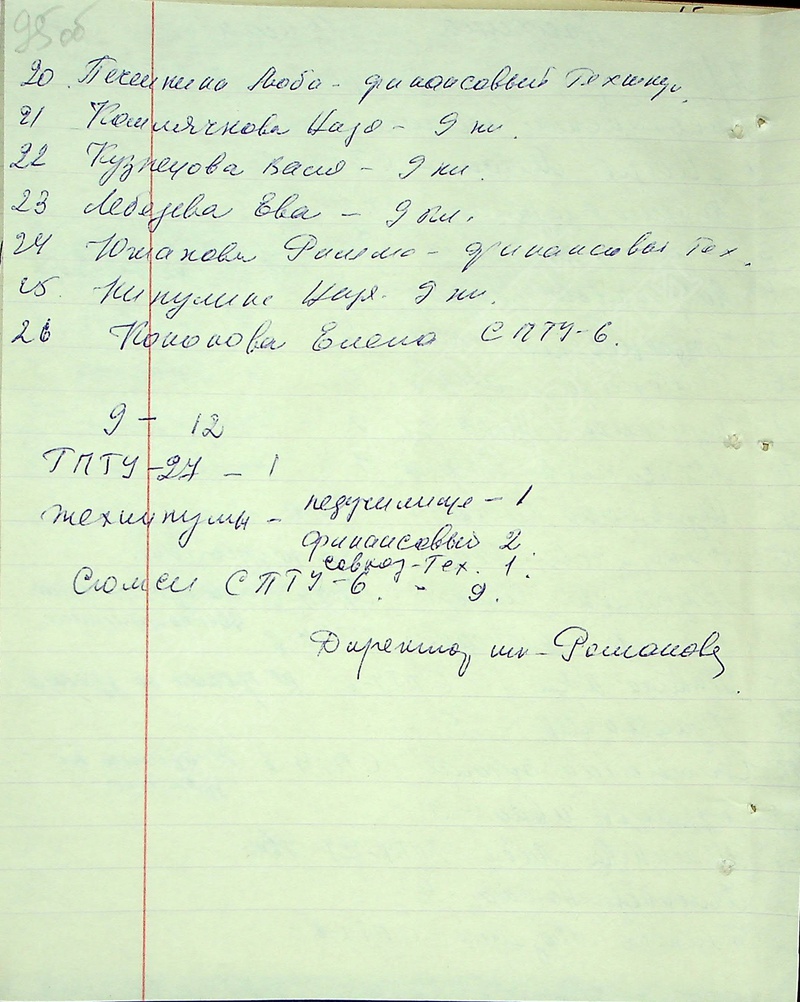 95 об
20. Печенкина Люба - финансовый Технику
21 Комлячкова Надя - 9 кл.
22 Кузнецова Валя - 9 кл.
23 Лебедева Ева - 9 кл.
24 Южакова - финансовый тех.
25. Надя - 9 кл.
26 Кононова Елена СПТУ-6.
9 - 12
ТПТУ-27 - 1
техникумы - педучилище - 1
финансовый 2.
совхоз-тех. 1.
Сюмси СПТУ-6. - 9.
Директор шк - Романова